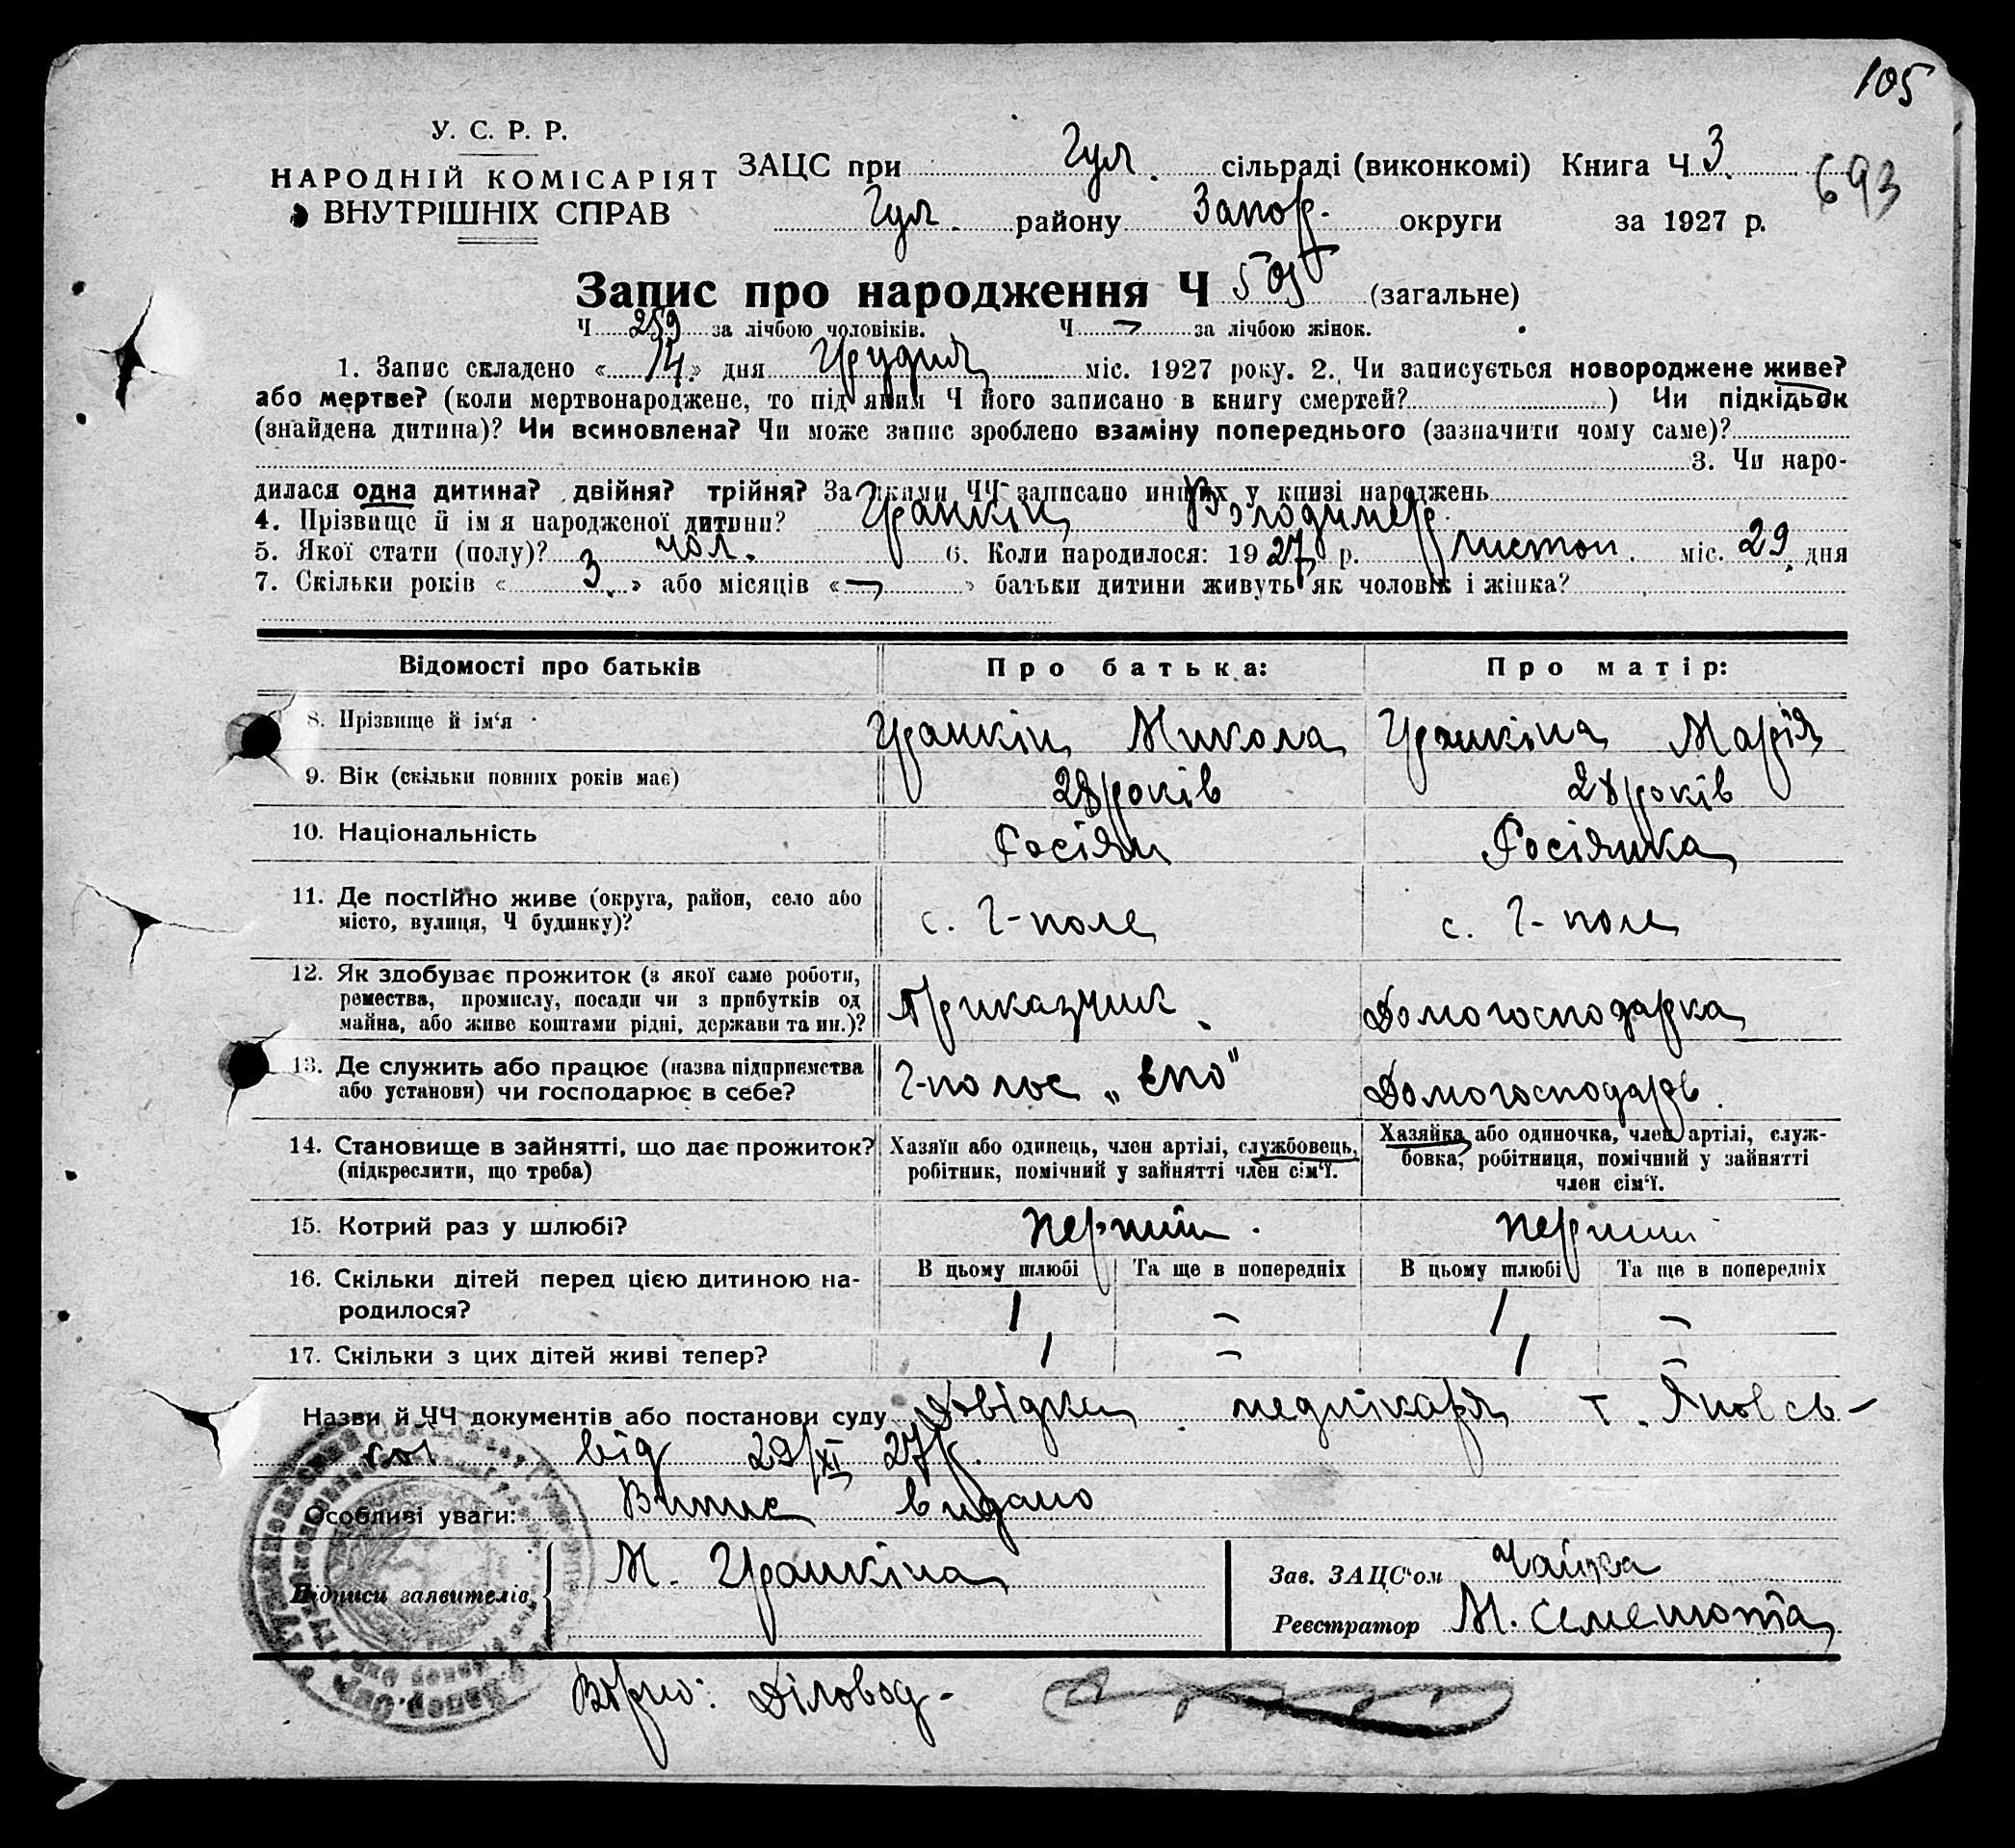 105
У. С. Р. Р.
НАРОДНІЙ КОМІСАРІЯТ
ВНУТРІШНІХ СПРАВ
ЗАЦС при Гул. сільраді (виконкомі) Книга Ч 3.
693
Гул. району Запор. округи за 1927 р.
Запис про народження Ч 505 (загальне)
Ч 259 за лічбою чоловіків. Ч — за лічбою жінок.
1. Запис складено « 14 » дня Грудня міс. 1927 року. 2. Чи записується новороджене живе?
або мертве? (коли мертвонароджене, то під яким Ч його записано в книгу смертей? ) Чи підкідьок
(знайдена дитина)? Чи всиновлена? Чи може запис зроблено взаміну попереднього (зазначити чому саме)?
3. Чи наро-
дилася одна дитина? двійня? трійня? За якими ЧЧ записано инших у книзі народжень
4. Прізвище й ім я народженої дитини? Гранкін Володимер
5. Якої стати (полу)? чол. 6. Коли народилося: 1927 р. листоп. міс. 29 дня
7. Скільки років « 3 » або місяців « — » батьки дитини живуть як чоловік і жінка?
Відомості про батьків Про батька: Про матір:
8. Прізвище й ім‘я Гранкін Микола Гранкіна Марія
9. Вік (скільки повних років має) 28 років 28 років
10. Національність Росіян Росіянка
11. Де постійно живе (округа, район, село або
місто, вулиця, Ч будинку)? с. Г-поле с. Г-поле
12. Як здобуває прожиток (з якої саме роботи,
ремества, промислу, посади чи з прибутків од
майна, або живе коштами рідні, держави та ин.)? Приказчик Домогосподарка
13. Де служить або працює (назва підприємства
або установи) чи господарює в себе? Г-польс „ЄПО" Домогосподарь.
14. Становище в зайнятті, що дає прожиток?
(підкреслити, що треба)
Хазяїн або одинець, член артілі, службовець,
робітник, помічний у зайнятті член сім‘ї.
Хазяйка або одиночка, член артілі, служ-
бовка, робітниця, помічний у зайнятті
член сім‘ї.
15. Котрий раз у шлюбі? Перший. Перший
16. Скільки дітей перед цією дитиною на-
родилося?
В цьому шлюбі Та ще в попередніх В цьому шлюбі Та ще в попередніх
1 — 1 —
17. Скільки з цих дітей живі тепер? 1 — 1 —
Назви й ЧЧ документів або постанови суду Довідка медлікаря т. Яновсь-
кої від 29/XI 27 р.
Особливі уваги: Випис видано
Підписи заявителів М. Гранкіна
Зав. ЗАЦС‘ом Чайка
Реєстратор
Вірно: Діловод-